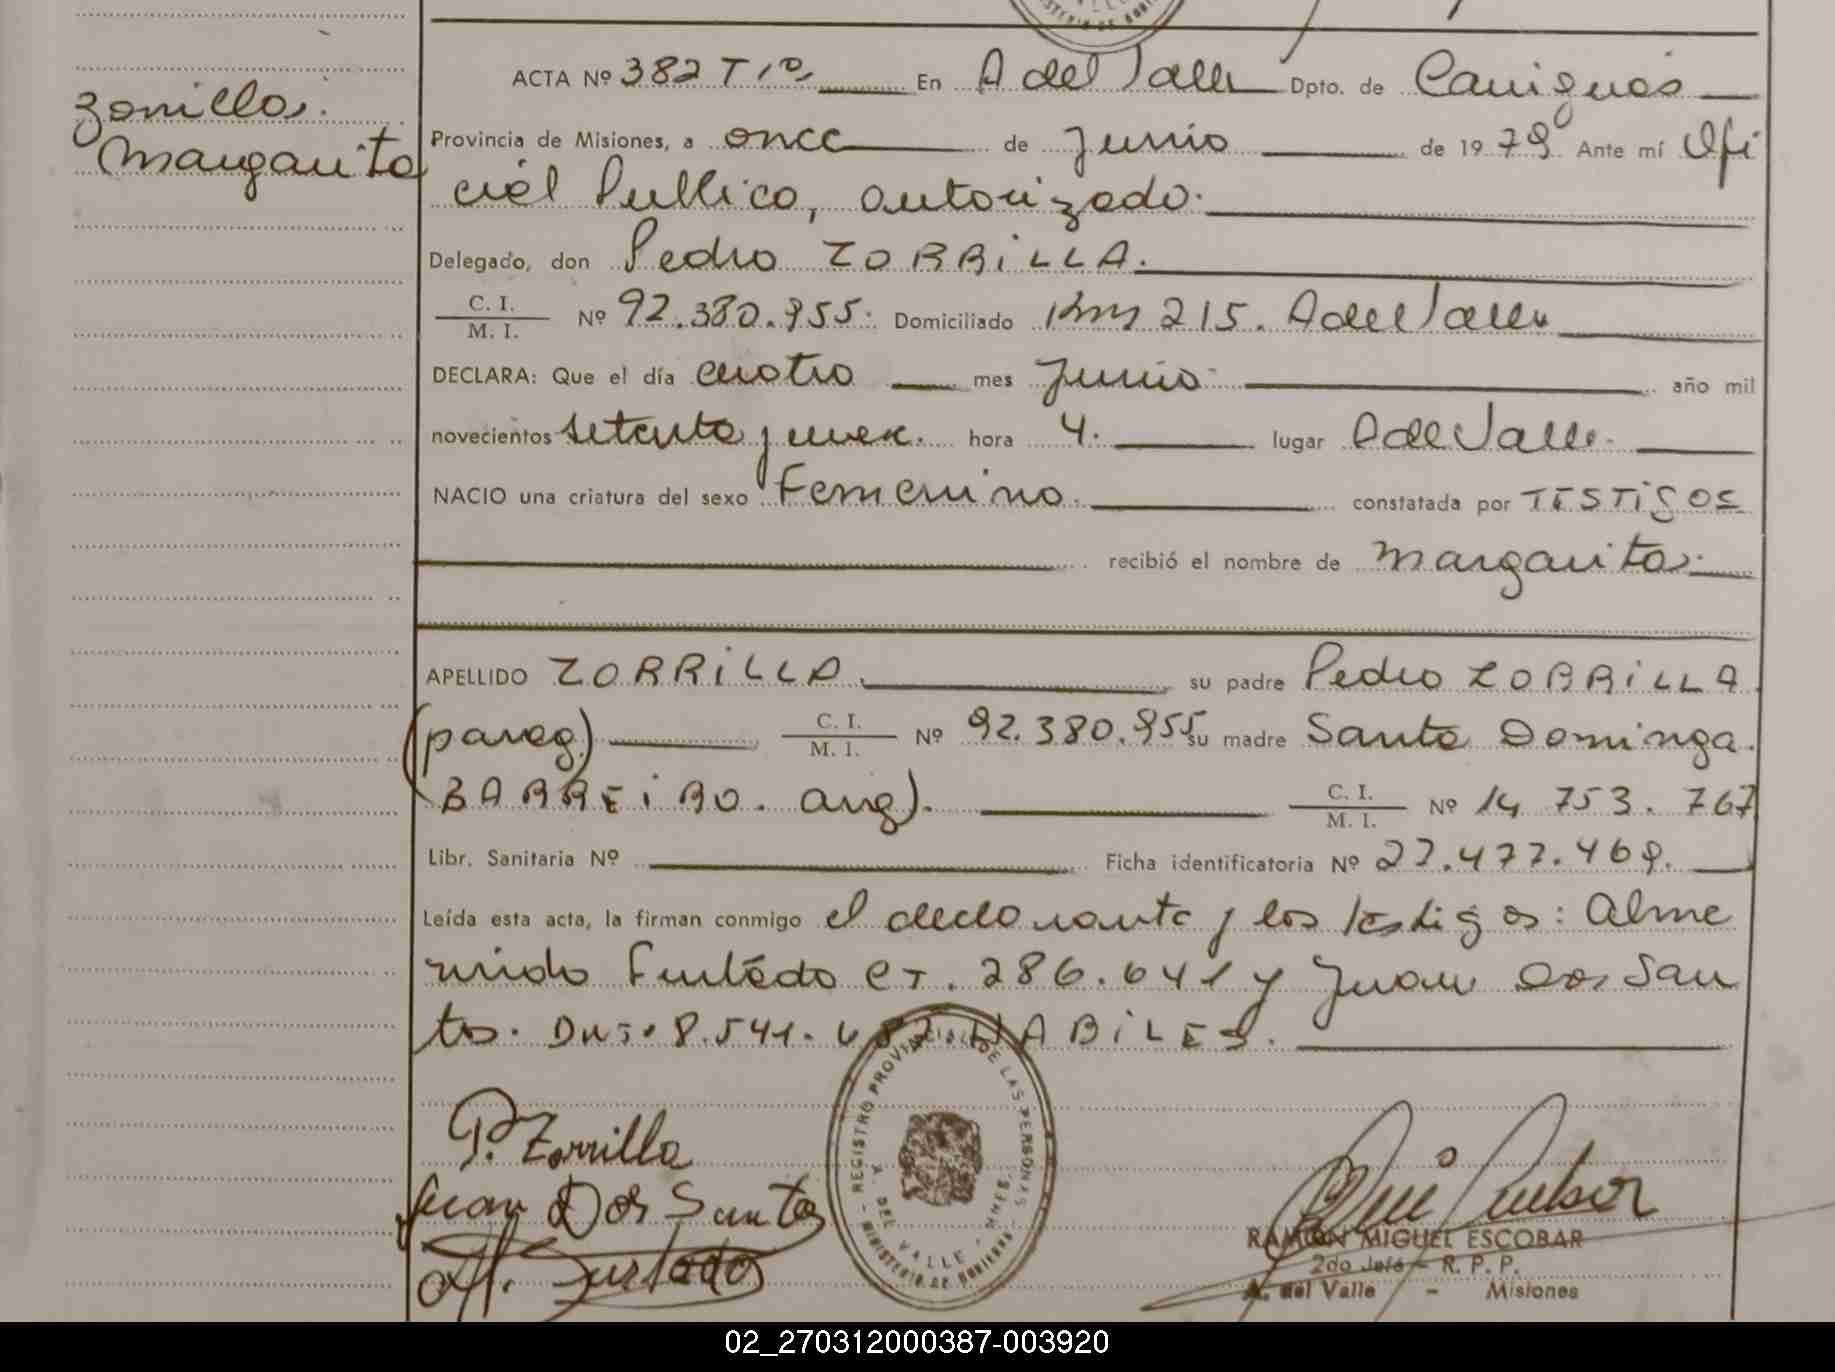 Zorrilla.
Margarita
ACTA Nº 382 Tº 1º En A del Valle Dpto. de Cainguás
Provincia de Misiones, a once de Junio de 1979 Ante mí Ofi
cial Publico, autorizado.
Delegado, don Pedro ZORRiLLA.
C. I.
M. I.
Nº 92.380.955. Domiciliado Km 215. A del Valle
DECLARA: Que el día cuatro mes Junio año mil
novecientos setenta y nueve. hora 4. lugar A del Valle.
NACIO una criatura del sexo Femenino. constatada por TESTiGOS
recibió el nombre de Margarita.
APELLIDO ZORRiLLA. su padre Pedro ZORRiLLA
(parag) C. I. / M. I. Nº 92.380.955 su madre Santa Dominga.
(BARREiRO. arg). C. I. / M. I. Nº 14 753. 767
Libr. Sanitaria Nº Ficha identificatoria Nº 27.477.469.
Leída esta acta, la firman conmigo el declarante y los testigos: Alme
rindo Furtado CI. 286.641 y Juan Dos San
tos. DNI. 8.541. HABiLES.
REGISTRO PROVINCIAL DE LAS PERSONAS
A. DEL VALLE - MNES.
MINISTERIO DE GOBIERNO
P. Zorrilla
Juan Dos Santos
Al. Furtado
RAMON MIGUEL ESCOBAR
2do Jefe - R. P. P.
A. del Valle - Misiones
02_270312000387-003920